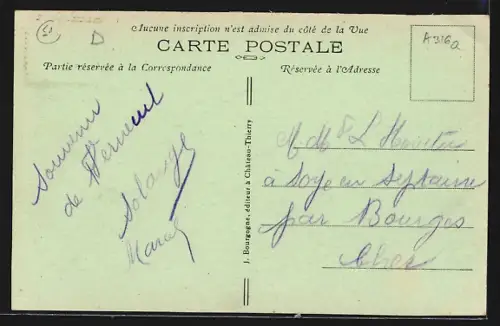 Aucune inscription n'est admise du côté de la Vue
CARTE POSTALE
Partie réservée à la Correspondance
Réservée à l'Adresse
A316a
51
D
Souvenir
de Verneuil
Solange
Marcel
J. Bourgogne, éditeur à Château-Thierry
M. Mme L
à Soye en Septaine
par Bourges
Cher